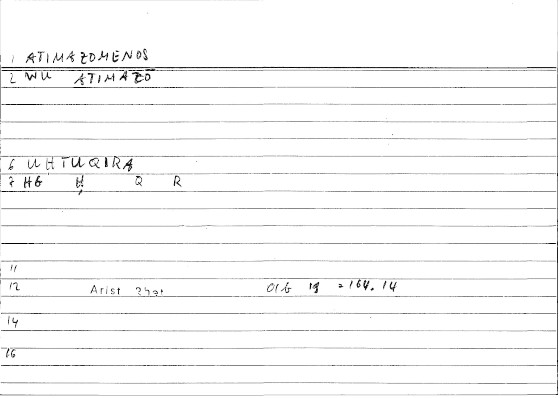 1 ATIMAZOMENOS
2 WU ATIMAZO
6 UHTUQIRA
7 HG Ḥ Q R
11
12 Arist 018 = 164.14
14
16